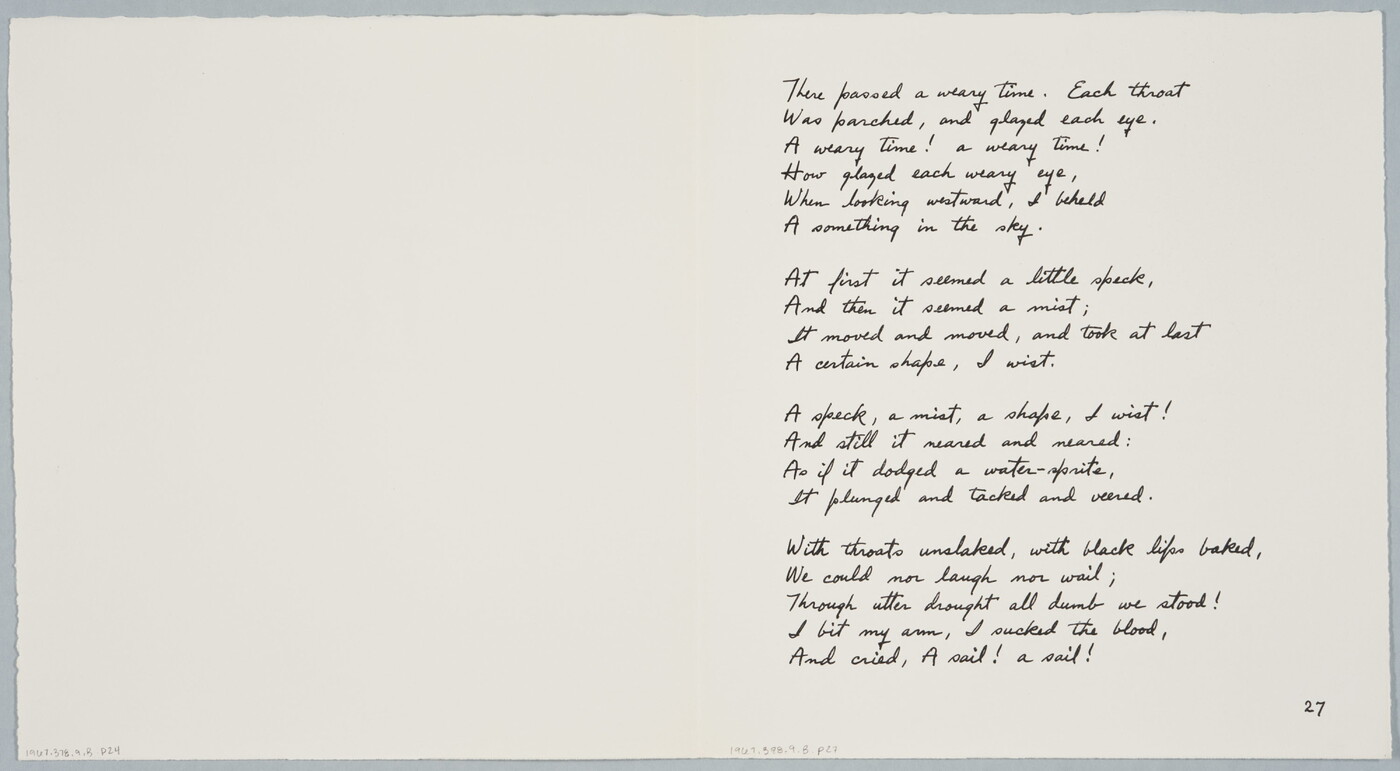 There passed a weary time. Each throat
Was parched, and glazed each eye.
A weary time! a weary time!
How glazed each weary eye,
When looking westward, I beheld
A something in the sky.

At first it seemed a little speck,
And then it seemed a mist;
It moved and moved, and took at last
A certain shape, I wist.

A speck, a mist, a shape, I wist!
And still it neared and neared:
As if it dodged a water-sprite,
It plunged and tacked and veered.

With throats unslaked, with black lips baked,
We could nor laugh nor wail;
Through utter drought all dumb we stood!
I bit my arm, I sucked the blood,
And cried, A sail! a sail!

27
1967.398.9.B P27